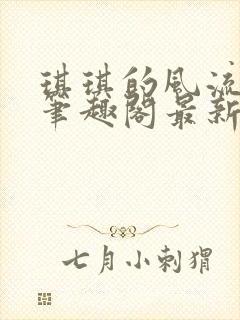 琪琪的風流
筆趣閣最新
七月小刺猬